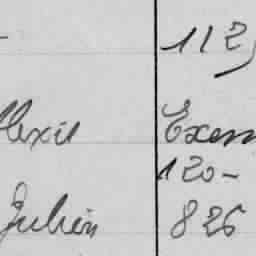 112
lexis Exem
120-
Julien 826